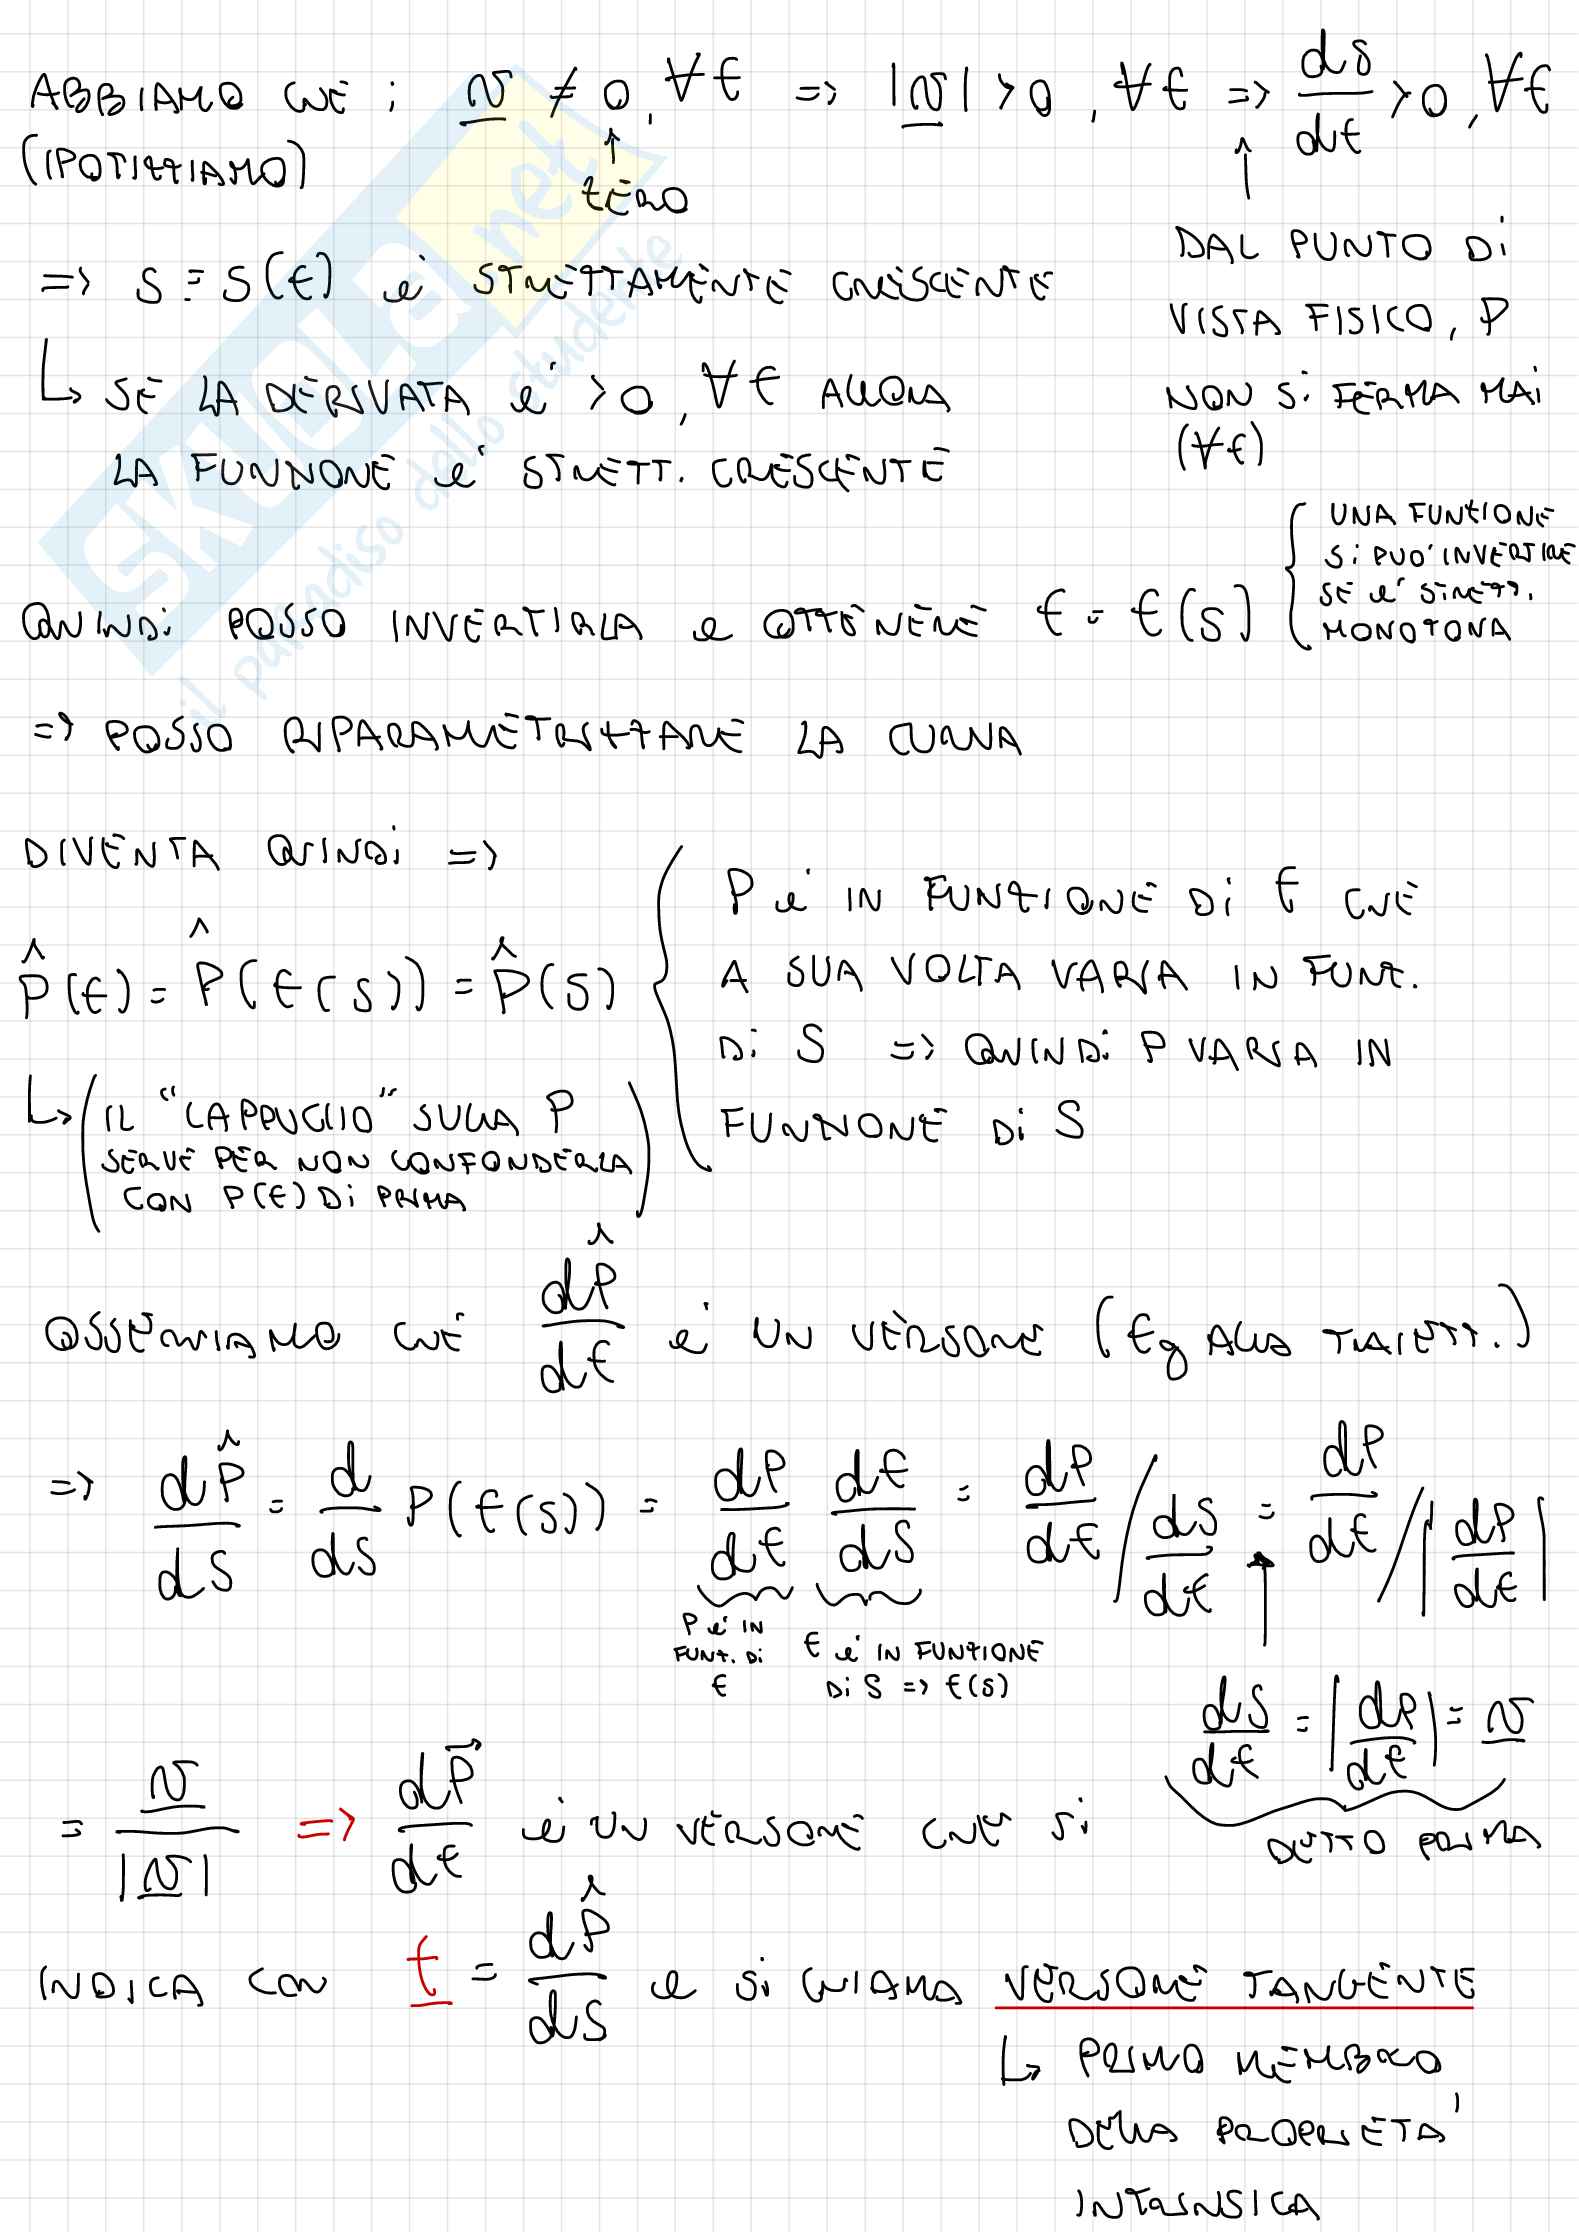 ABBIAMO CHE : v ≠ 0, ∀t => |v| > 0, ∀t => ds/dt > 0, ∀t
(IPOTIZZIAMO)
↑ ZERO
↑ DAL PUNTO DI
VISTA FISICO, P
NON SI FERMA MAI
(∀t)
=> S = S(t) è STRETTAMENTE CRESCENTE
↳ SE LA DERIVATA è > 0, ∀t ALLORA
LA FUNZIONE è STRETT. CRESCENTE
QUINDI POSSO INVERTIRLA e OTTENERE t = t(S)
{ UNA FUNZIONE
SI PUO' INVERTIRE
SE è STRETT.
MONOTONA
=> POSSO RIPARAMETRIZZARE LA CURVA
DIVENTA QUINDI =>
P̂(t) = P̂(t(s)) = P̂(S)
{ P è IN FUNZIONE DI t CHE
A SUA VOLTA VARIA IN FUNZ.
DI S => QUINDI P VARIA IN
FUNZIONE DI S
↳ (IL "CAPPUCCIO" SULLA P
SERVE PER NON CONFONDERLA
CON P(t) DI PRIMA)
OSSERVIAMO CHE dP̂/dt è UN VERSORE (tg ALLA TRAIETT.)
=> dP̂/dS = d/dS P(t(S)) = dP/dt dt/dS = dP/dt / dS/dt = dP/dt / |dP/dt|
P è IN
FUNZ. DI
t
t è IN FUNZIONE
DI S => t(S)
dS/dt = |dP/dt| = v
DETTO PRIMA
= v/|v| => dP⃗/dt è UN VERSORE CHE SI
INDICA CON t = dP̂/dS e SI CHIAMA VERSORE TANGENTE
↳ PRIMO MEMBRO
DELLA PROPRIETA'
INTRINSICA
SKUOLA.net
il paradiso dello studente